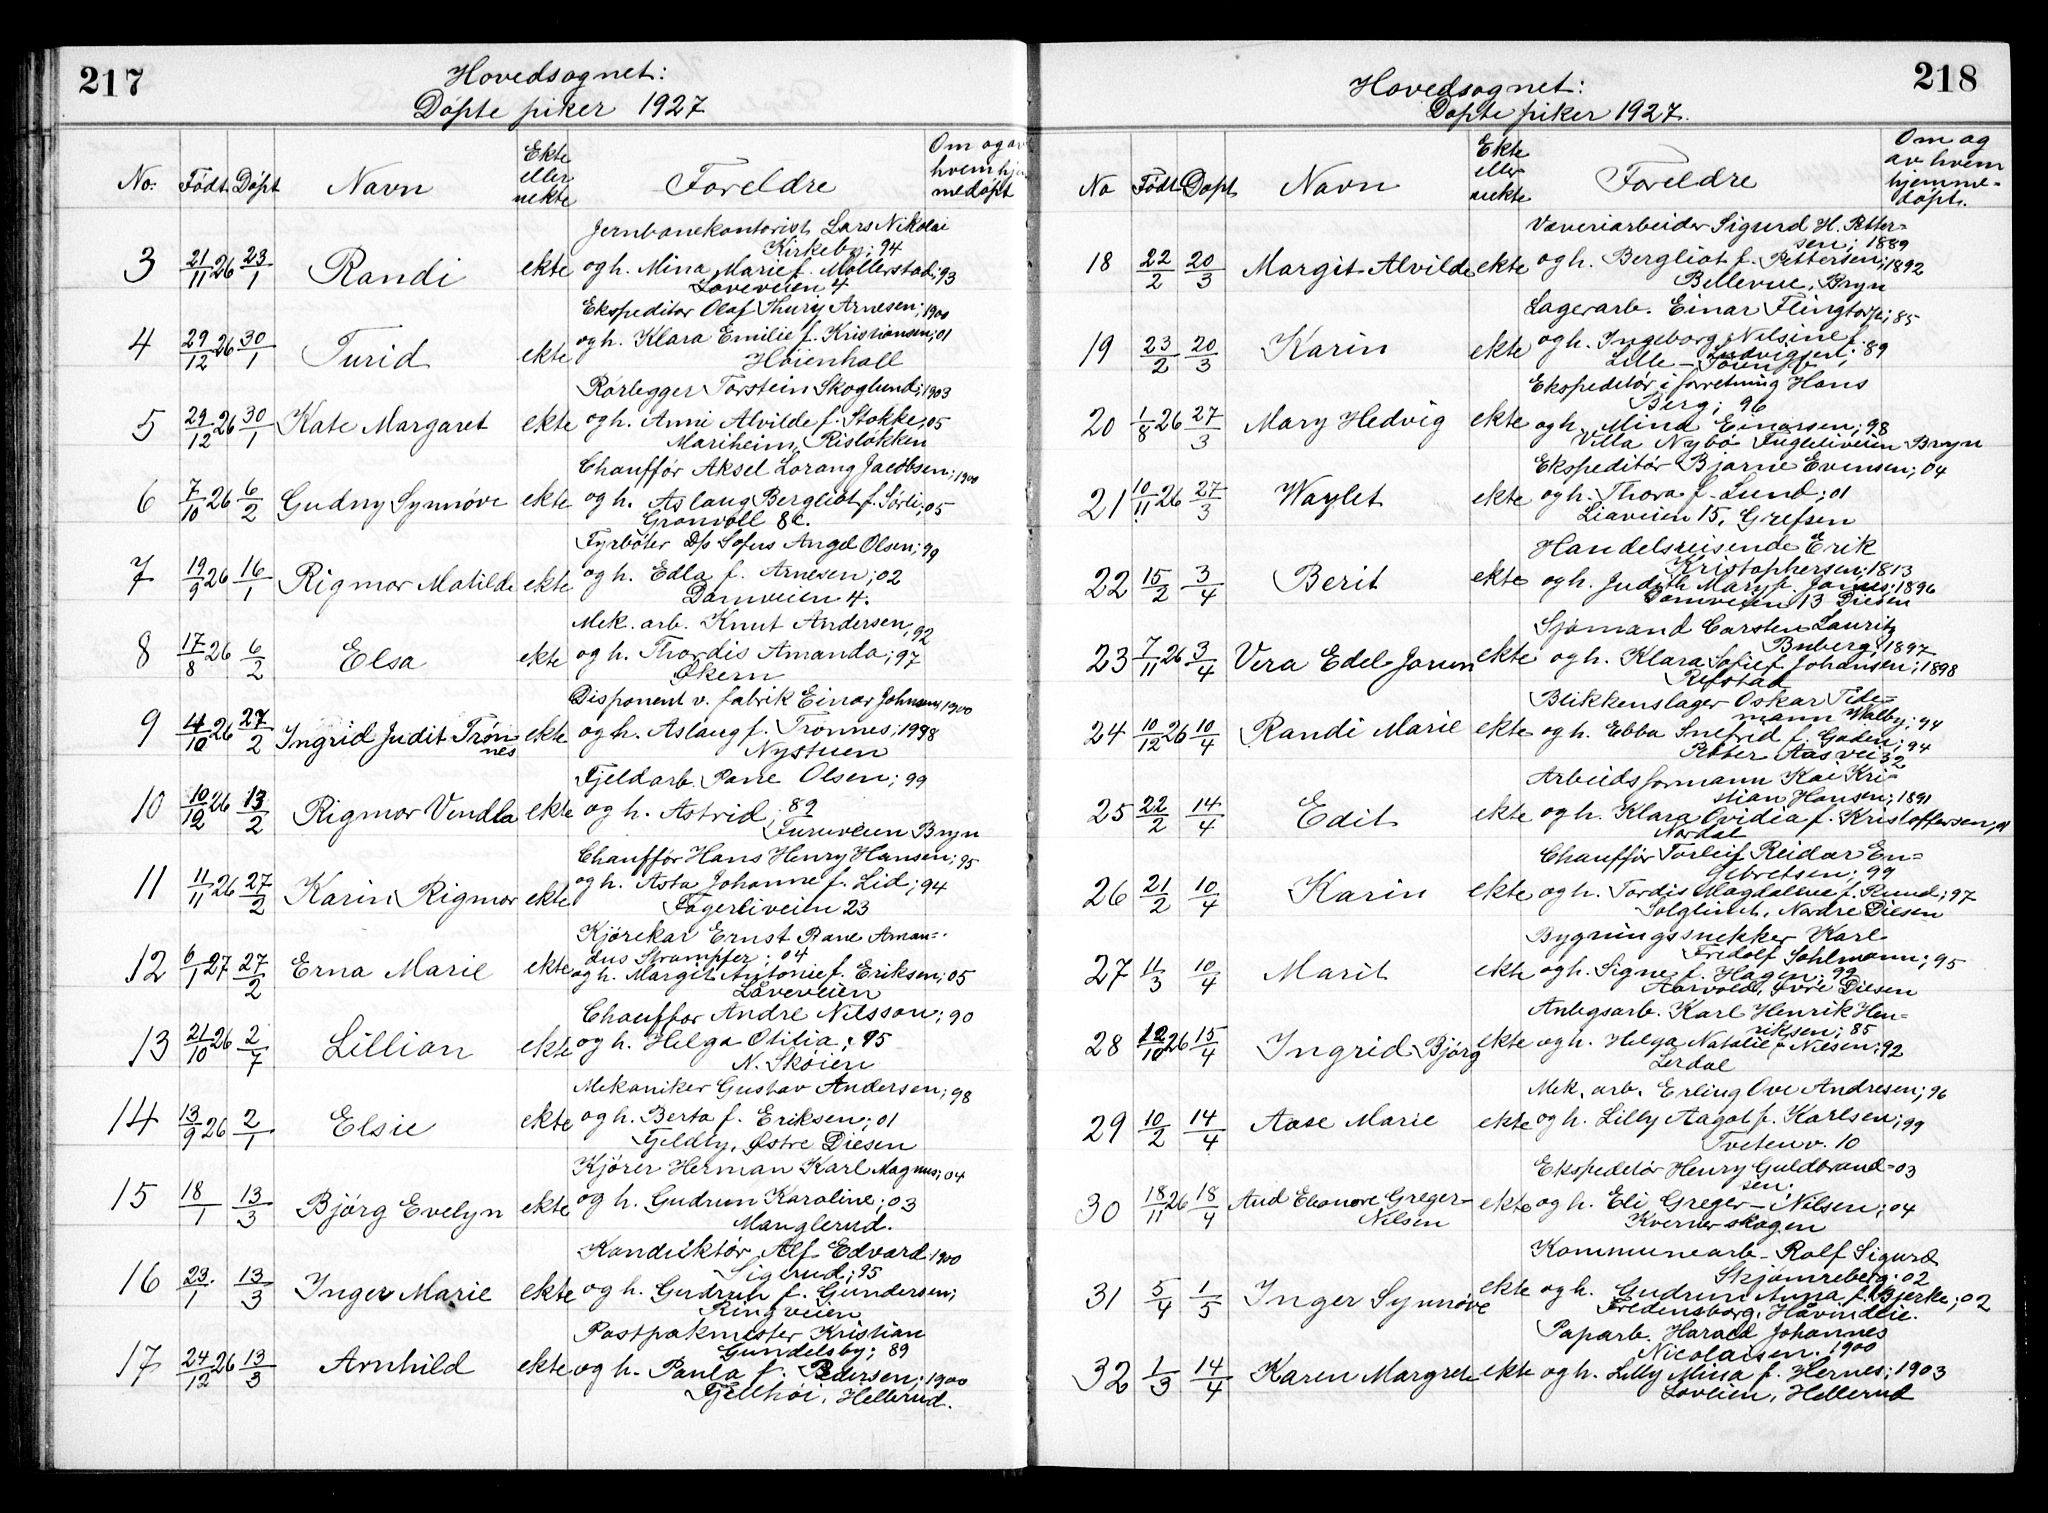 217
Hovedsognet:
Døpte piker 1927
No: Født Døpt Navn Ekte eller uekte Foreldre Om og av hvem hjemmedøpt
Jernbanekontorist Lars Nikolai
Kirkeby; 94
3 21/11 26 23/1 Randi ekte og h. Mina Marie f. Møllerstad; 93
Løveveien 4
Ekspeditør Olaf Thury Arnesen; 1900
4 29/12 26 30/1 Turid ekte og h. Klara Emilie f. Kristiansen; 01
Høienhall
Rørlegger Torstein Skoglund; 1903
5 29/12 26 30/1 Kate Margaret ekte og h. Anni Alvilde f. Stokke; 05
Mariheim, Risløkken
Chauffør Aksel Lorang Jacobsen; 1900
6 7/10 26 6/2 Gudny Synnøve ekte og h. Aslaug Bergliot f. Sørli; 05
Grønvoll 8c.
Fyrbøter D/s Sofus Angel Olsen; 99
7 19/9 26 16/1 Rigmor Matilde ekte og h. Edla f. Arnesen; 02
Damveien 4.
Mek. arb. Knut Andersen, 92
8 17/8 26 6/2 Elsa ekte og h. Thordis Amanda; 97
Økern
Disponent v. fabrik Einar Johnsen; 1900
9 4/10 26 27/2 Ingrid Judit Trønnes ekte og h. Aslaug f. Trønnes; 1998
Nystuen
Fjeldarb. Pane Olsen; 99
10 10/12 26 13/2 Rigmor Vendla ekte og h. Astrid; 89
Furuveien Bryn
Chauffør Hans Henry Hansen; 95
11 11/11 26 27/2 Karin Rigmor ekte og h. Asta Johanne f. Lid; 94
Fagerliveien 23
Kjørekar Ernst Rane Aman=
dus Strampfer; 04
12 6/1 27 27/2 Erna Marie ekte og h. Margit Antonie f. Eriksen; 05
Låveveien
Chauffør Andre Nilsson; 90
13 21/10 26 2/7 Lillian ekte og h. Helga Otilia; 95
N. Skøien
Mekaniker Gustav Andersen; 98
14 13/9 26 2/1 Elsie ekte og h. Berta f. Eriksen; 01
Feldly, Østre Diesen
Kjører Herman Karl Magnus; 04
15 18/1 13/3 Bjørg Evelyn ekte og h. Gudrun Karoline; 03
Manglerud.
Konduktør Alf Edvard 1900
Sigerud; 95
16 23/1 13/3 Inger Marie ekte og h. Gudrun f. Gundersen;
Ringveien
Postpakmester Kristian
Gundelsby; 89
17 24/12 26 13/3 Arnhild ekte og h. Paula f. Pedersen; 1900
Fjellhøi, Hellerud.
218
Hovedsognet:
Døpte piker 1927.
No Født Døpt Navn Ekte eller uekte Foreldre Om og av hvem hjemme=døpt.
Væveriarbeider Sigurd H. Petter=
sen; 1889
18 22/2 20/3 Margit Alvilde ekte og h. Bergliot f. Pettersen; 1892
Bellevue, Bryn
Lagerarb. Einar Flingtorp; 85
19 23/2 20/3 Karin ekte og h. Ingeborg Nilsine f.
Ludvigsen; 89
Lille-
Ekspeditør i forretning Hans
Berg; 96
20 1/8 26 27/3 Mary Hedvig ekte og h. Mina Einarsen; 98
Villa Nybo Fugleliveien Bryn
Ekspeditør Bjarne Evensen; 04
21 10/11 26 27/3 Waylet ekte og h. Thora f. Lund; 01
Liaveien 15, Grefsen
Handelsreisende Erik
Kristophersen; 1813
22 15/2 3/4 Berit ekte og h. Judith Mary f. James; 1896
Damveien 13 Diesen
Sjømand Carsten Lauritz
Buberg; 1897
23 7/11 26 3/4 Vera Edel Jorun ekte og h. Klara Sofie f. Johansen; 1898
Refstad
Blikkenslager Oskar Tide=
mann Walby; 94
24 10/12 26 10/4 Randi Marie ekte og h. Ebba Snefrid f. Gaden; 94
Petter Aasvei 32
Arbeidsformann Kai Kri=
stian Hansen; 1891
25 22/2 14/4 Edit ekte og h. Klara Ovidia f. Kristoffersen; 01
Nordal
Chauffør Torleif Reidar En=
gebretsen; 99
26 21/2 10/4 Karin ekte og h. Tordis Magdalene f. Ruud; 97
Solglimt, Nordre Diesen
Bygningssnekker Karl
Fredolf Sohlmann; 95
27 11/3 10/4 Marit ekte og h. Signe f. Hagen; 99
Aarvold, Øvre Diesen
Anlegsarb. Karl Henrik Hen=
riksen; 85
28 12/10 26 15/4 Ingrid Bjørg ekte og h. Helga Natalie f. Nilsen; 92
Lerdal
Mek. arb. Erling Ove Andresen; 96
29 10/2 14/4 Aase Marie ekte og h. Lilly Aagot f. Karlsen; 99
Tvetenv. 10
Ekspeditør Henry Guldbrand= 03
sen;
30 18/11 26 18/4 Aud Eleonore Greger-Nilsen ekte og h. Eli Greger-Nilsen; 04
Kvernerskogen
Kommunearb- Rolf Sigurd
Skjønreberg; 02
31 5/4 1/5 Inger Synnøve ekte og h. Gudrun Anna f. Bjerke; 02
Fredensborg, Håvindlie.
Paparb. Harald Johannes
Nicolaisen. 1900
32 1/3 14/4 Karen Margrete ekte og h. Lilly Mina f. Hernes; 1903
Loveien, Hellerud